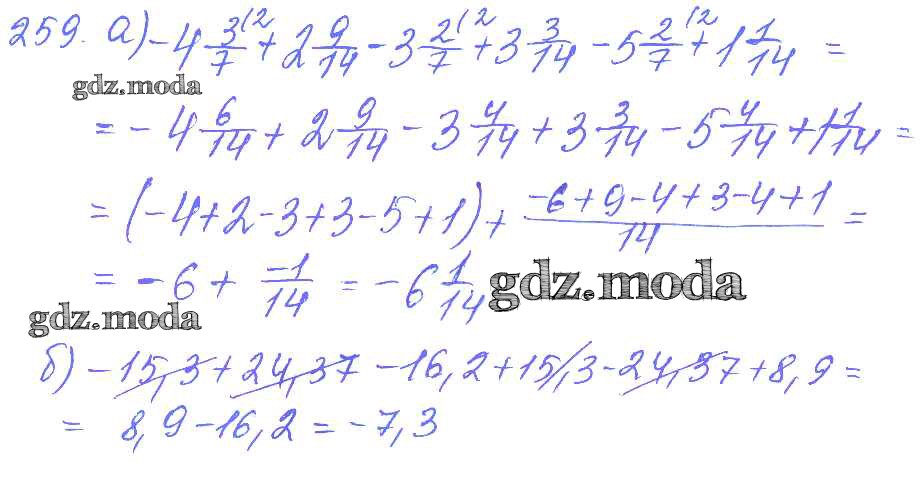 259. а) -4 3/7 (2 + 2 9/14 - 3 2/7 (2 + 3 3/14 - 5 2/7 (2 + 1 1/14 =
gdz.moda
= - 4 6/14 + 2 9/14 - 3 4/14 + 3 3/14 - 5 4/14 + 1 1/14 =
= (-4+2-3+3-5+1) + -6+9-4+3-4+1/14 =
= -6 + -1/14 = -6 1/14
gdz.moda
gdz.moda
б) -15,3+24,37-16,2+15,3-24,37+8,9=
= 8,9-16,2=-7,3